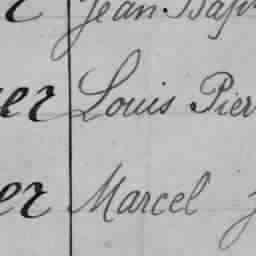 Jean Bap
er Louis Pier
er Marcel J